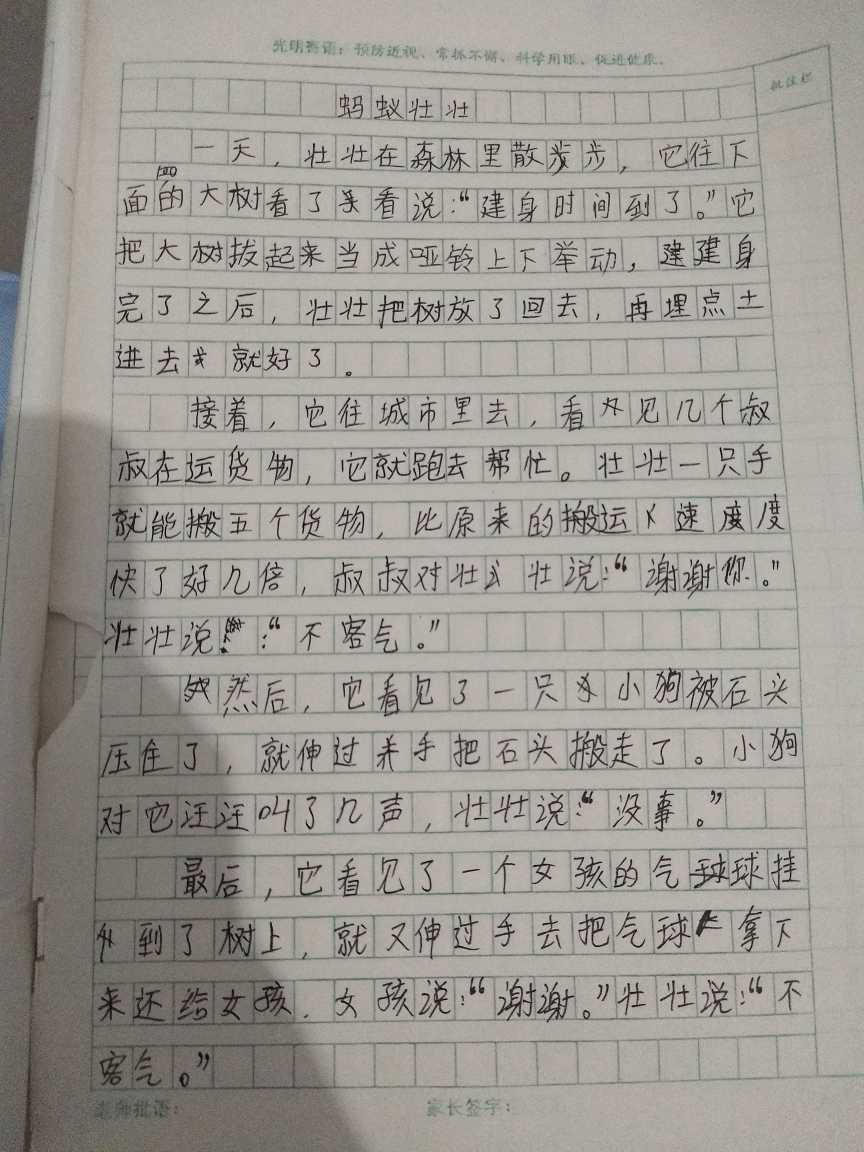 光明寄语：预防近视、常抓不懈、科学用眼、促进健康。
批注栏
蚂蚁壮壮
一天，壮壮在森林里散步，它往下
面的大树看了看说：“建身时间到了。”它
把大树拔起来当成哑铃上下举动，建身
完了之后，壮壮把树放了回去，再埋点土
进去就好了。
接着，它往城市里去，看见几个叔
叔在运货物，它就跑去帮忙。壮壮一只手
就能搬五个货物，比原来的搬运速度
快了好几倍，叔叔对壮壮说：“谢谢你。”
壮壮说：“不客气。”
然后，它看见了一只小狗被石头
压住了，就伸过手把石头搬走了。小狗
对它汪汪叫了几声，壮壮说：“没事。”
最后，它看见了一个女孩的气球挂
到了树上，就又伸过手去把气球拿下
来还给女孩．女孩说：“谢谢。”壮壮说：“不
客气。”
老师批语：
家长签字：